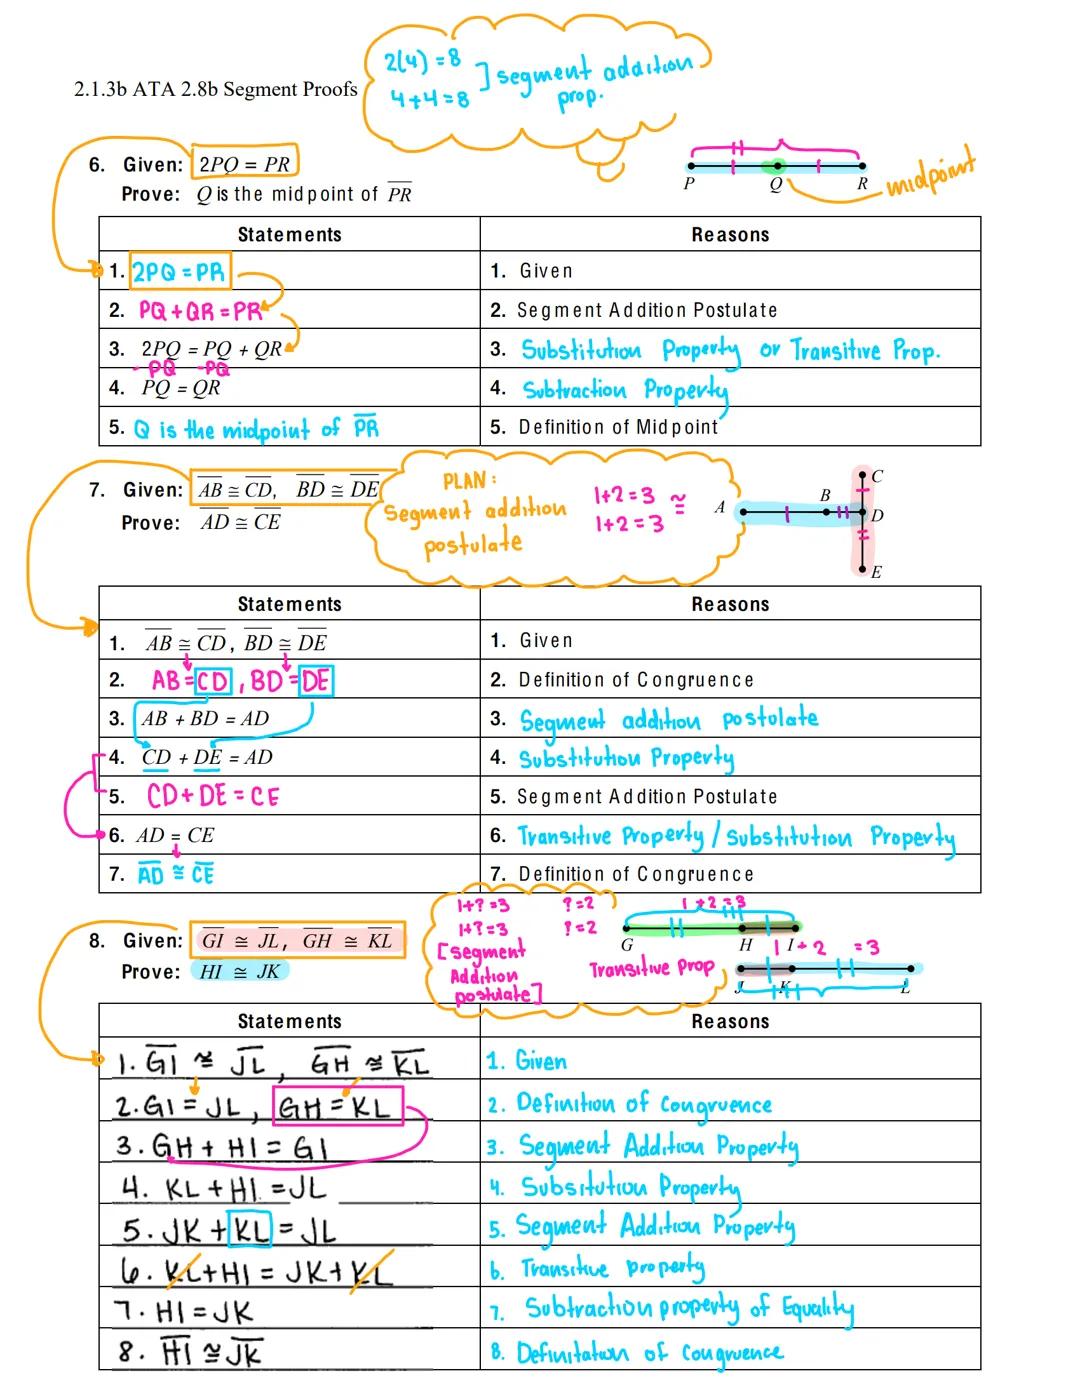 2(4) = 8
4+4=8
] segment addition
prop.
2.1.3b ATA 2.8b Segment Proofs
6. Given: 2PQ = PR
Prove: Q is the midpoint of PR
P Q R
midpoint
Statements Reasons
1. 2PQ = PR 1. Given
2. PQ + QR = PR 2. Segment Addition Postulate
3. 2PQ = PQ + QR 3. Substitution Property or Transitive Prop.
- PQ -PQ
4. PQ = QR 4. Subtraction Property
5. Q is the midpoint of PR 5. Definition of Midpoint
7. Given: AB ≅ CD, BD ≅ DE
Prove: AD ≅ CE
PLAN:
Segment addition
postulate
1+2=3
≅
1+2=3
A B C
D
E
Statements Reasons
1. AB ≅ CD, BD ≅ DE 1. Given
2. AB = CD, BD = DE 2. Definition of Congruence
3. AB + BD = AD 3. Segment addition postulate
4. CD + DE = AD 4. Substitution Property
5. CD + DE = CE 5. Segment Addition Postulate
6. AD = CE 6. Transitive Property / Substitution Property
7. AD ≅ CE 7. Definition of Congruence
8. Given: GI ≅ JL, GH ≅ KL
Prove: HI ≅ JK
1+?=3 ?=2
1+?=3 ?=2
[segment
Addition
postulate]
Transitive Prop
1+2=3
G H I
1+2 =3
J K L
Statements Reasons
1. GI ≅ JL, GH ≅ KL 1. Given
2. GI = JL, GH = KL 2. Definition of Congruence
3. GH + HI = GI 3. Segment Addition Property
4. KL + HI = JL 4. Subsitution Property
5. JK + KL = JL 5. Segment Addition Property
6. KL + HI = JK + KL 6. Transitive property
7. HI = JK 7. Subtraction property of Equality
8. HI ≅ JK 8. Definitation of Congruence